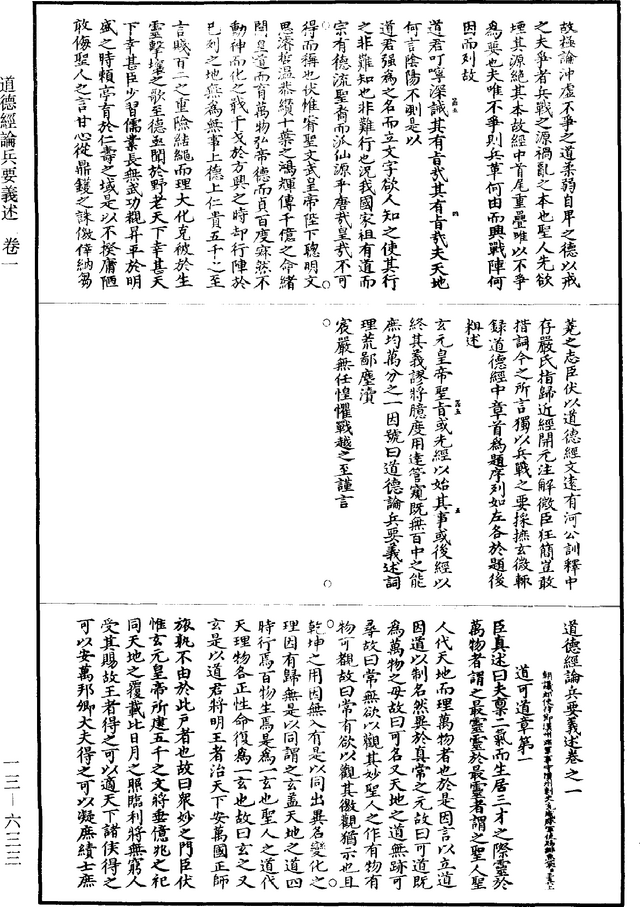 道德經論兵要義述 卷一
一三—六三三
故極論沖虛不爭之道柔弱自卑之德以戒
之夫爭者兵戰之源禍亂之本也聖人先欲
堙其源絕其本故經中首尾重疊唯以不爭
為要也夫唯不爭則兵革何由而興戰陣何
因而列故
道君叮嚀深誡其有旨哉其有旨哉夫天地
何言陰陽不測是以
道君強為之名而立文字欲人知之使其行
之非難知也非難行也況我國家祖有道而
宗有德流聖裔而派仙源乎唐哉皇哉不可
得而稱也伏惟睿聖文武皇帝陛下聰明文
思濬哲溫恭纘十葉之鴻輝傳千億之命緒
闡皇道而育萬物弘帝德而貞百度寂然不
動神而化之戢干戈於方興之時却行陣於
已列之地無為無事上德上仁貴五千之至
言賤百二之重險結繩而理大化克被於生
靈擊壤之歌至德亟聞於野老天下幸甚天
下幸甚臣少習儒業長無武功觀昇平於明
盛之時賴亭育於仁壽之域是以不揆庸陋
敢侮聖人之言甘心從鼎鑊之誅儌倖納芻
蕘之志臣伏以道德經文遠有河公訓釋中
存嚴氏指歸近經開元注解微臣狂簡豈敢
措詞今之所言獨以兵戰之要採摭玄微輒
錄道德經中章首為題序列如左各於題後
粗述
玄元皇帝聖旨或先經以始其事或後經以
終其義謬將臆度用達管窺既無百中之能
庶均萬分之一因號曰道德論兵要義述詞
理荒鄙塵瀆
宸嚴無任惶懼戰越之至謹言
道德經論兵要義述卷之一
道可道章第一
臣真述曰夫禀二氣而生居三才之際靈於
萬物者謂之最靈靈於最靈者謂之聖人聖
人代天地而理萬物者也於是因言以立道
因道以制名然異於真常之元故曰可道既
為萬物之母故曰可名又天地之道無跡可
尋故曰常無欲以觀其妙聖人之作有物有
物可觀故曰常有欲以觀其徼觀猶示也且
乾坤之用因無入有是以同出異名變化之
理因有歸無是以同謂之玄蓋天地之道四
時行焉百物生焉是為一玄也聖人之道代
天理物各正性命復為一玄也故曰玄之又
玄是以道君將明王者治天下安萬國正師
旅孰不由於此戶者也故曰眾妙之門臣伏
惟玄元皇帝所建五千之文將垂億兆之祀
同天地之覆載比日月之照臨利將無窮人
受其賜故王者得之可以適天下諸侯得之
可以安萬邦卿大夫得之可以凝庶績士庶